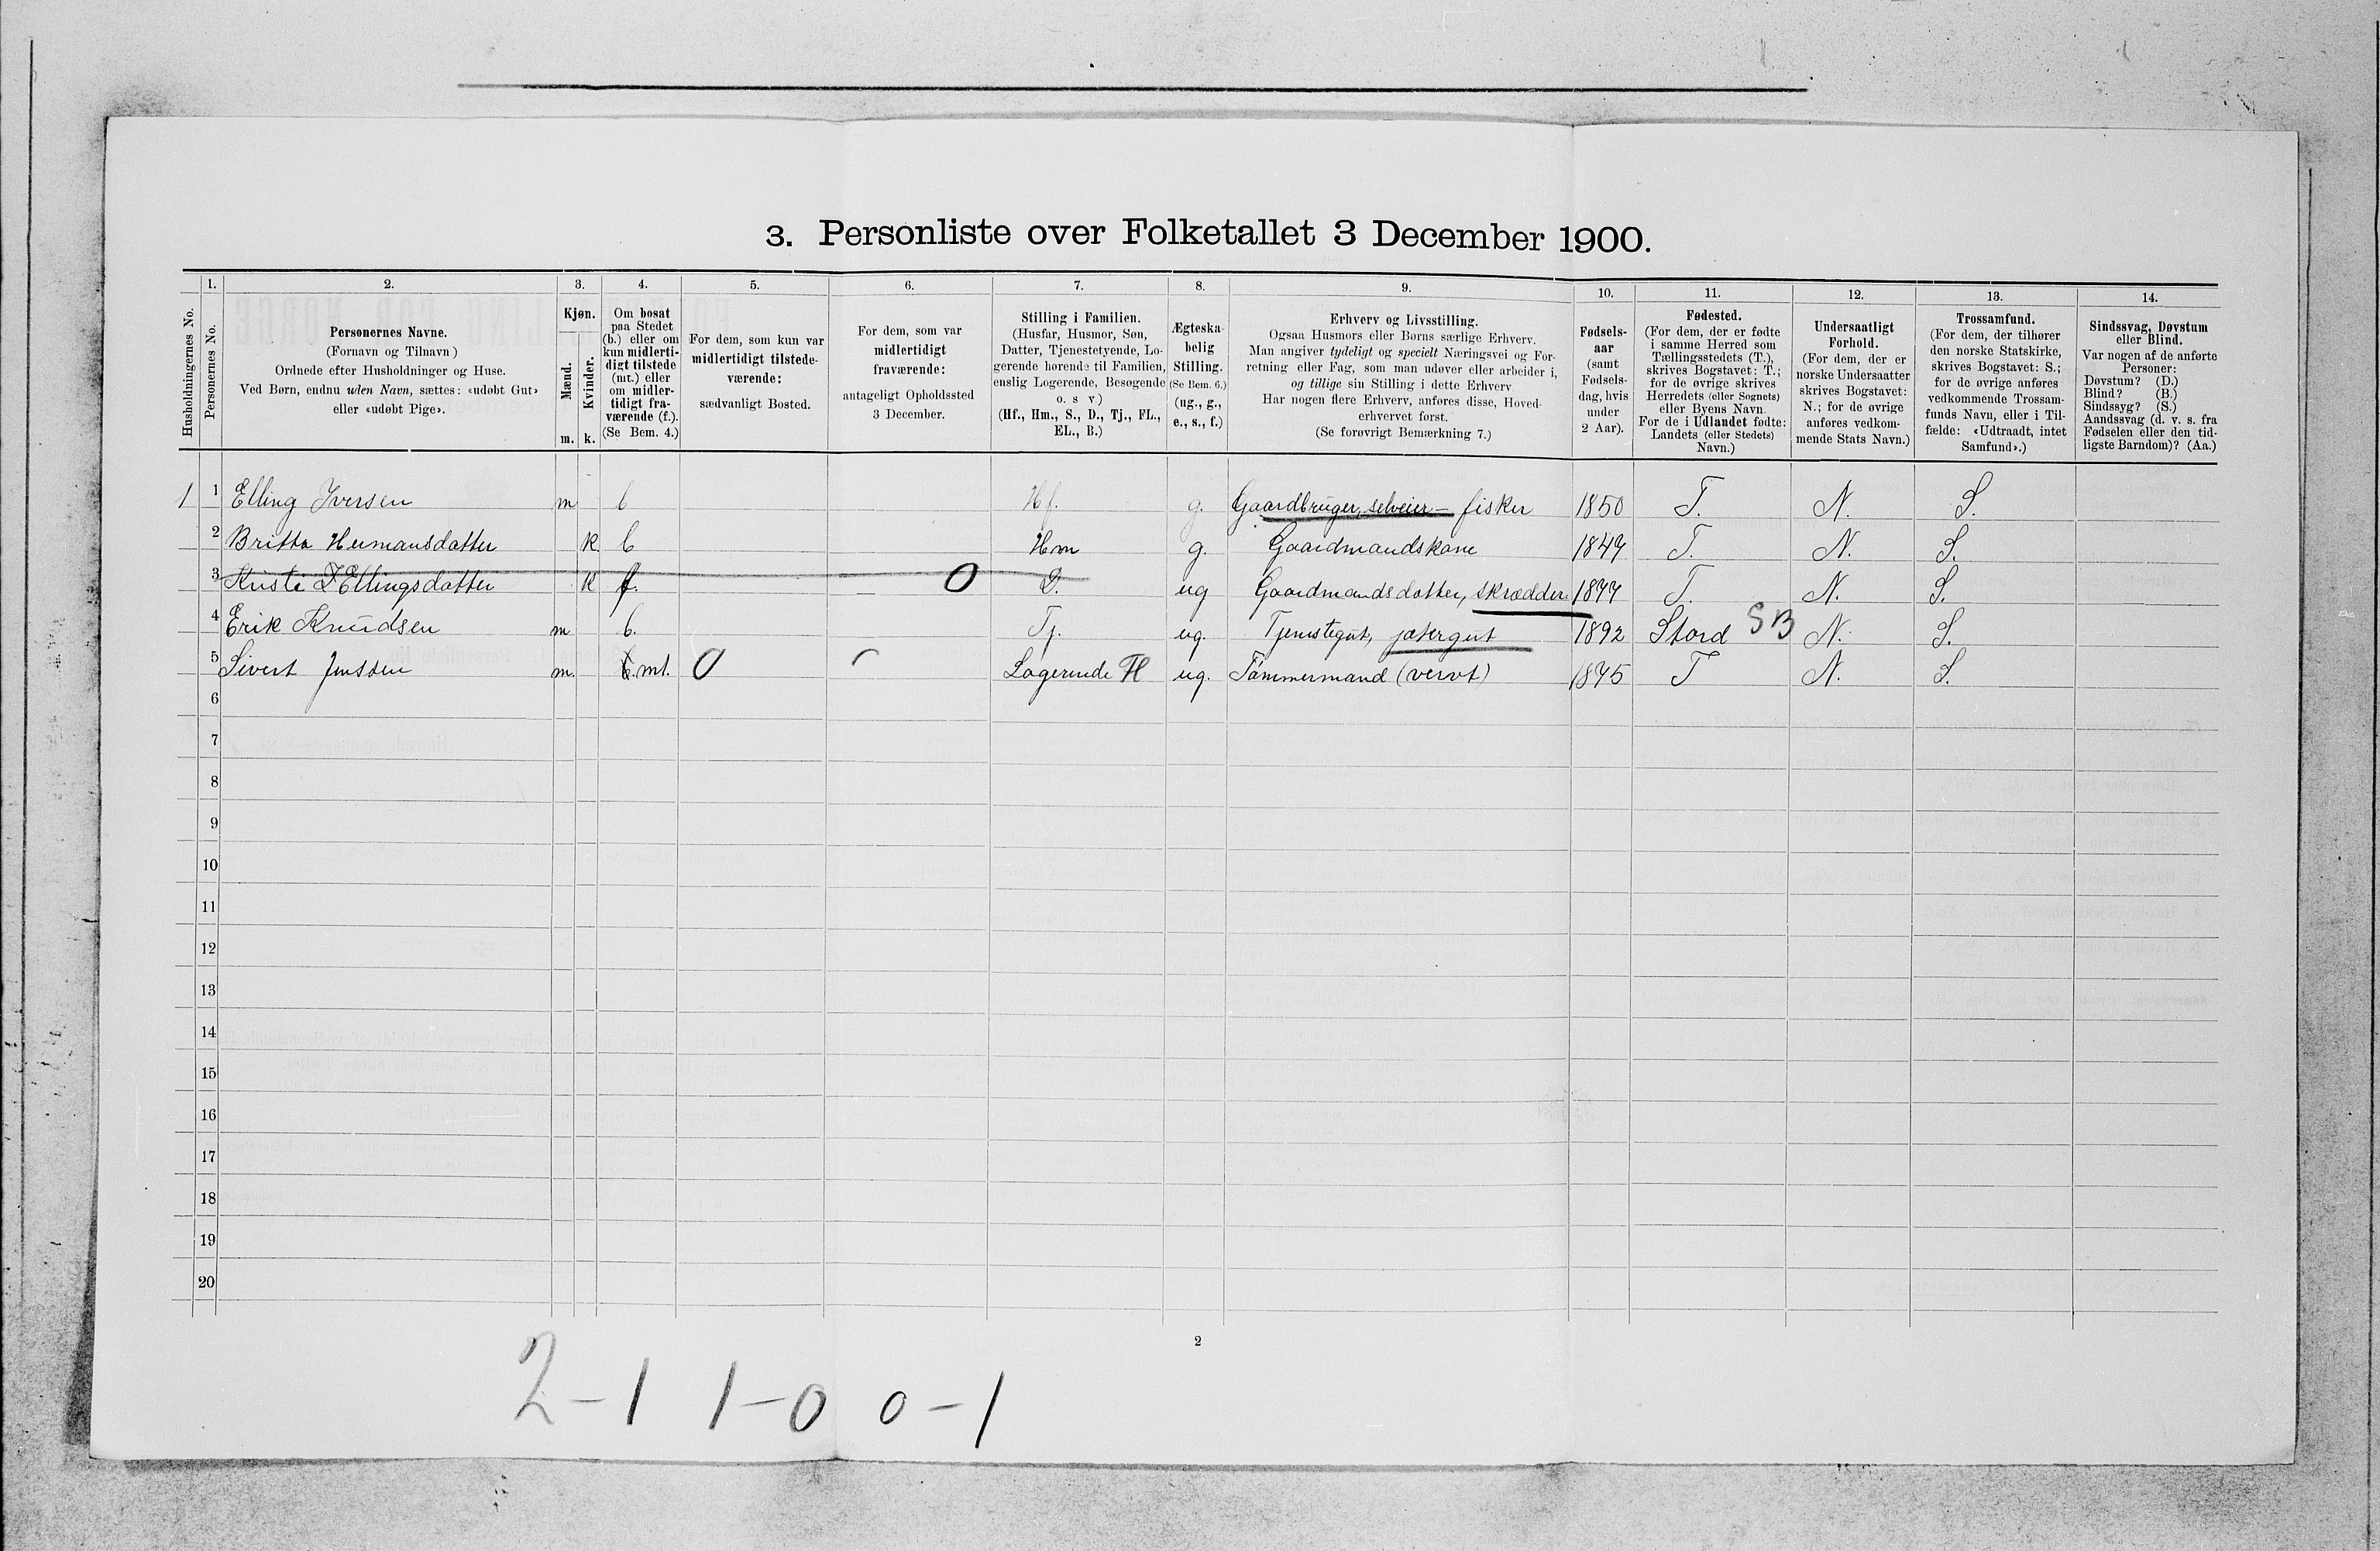 3. Personliste over Folketallet 3 December 1900.
Husholdningernes No.
1.
Personernes No.
2.
Personernes Navne.
(Fornavn og Tilnavn)
Ordnede efter Husholdninger og Huse.
Ved Børn, endnu uden Navn, sættes: «udøbt Gut»
eller «udøbt Pige».
3.
Kjøn.
Mænd.
m.
Kvinder.
k.
4.
Om bosat
paa Stedet
(b.) eller om
kun midlerti-
digt tilstede
(mt.) eller
om midler-
tidigt fra-
værende (f.).
(Se Bem. 4.)
5.
For dem, som kun var
midlertidigt tilstede-
værende:
sædvanligt Bosted.
6.
For dem, som var
midlertidigt
fraværende:
antageligt Opholdssted
3 December.
7.
Stilling i Familien.
(Husfar, Husmor, Søn,
Datter, Tjenestetyende, Lo-
gerende hørende til Familien,
enslig Logerende, Besøgende
o. s v.)
(Hf., Hm., S., D., Tj., FL.,
EL., B.)
8.
Ægteska-
belig
Stilling.
(Se Bem. 6.)
(ug., g.,
e., s., f.)
9.
Erhverv og Livsstilling.
Ogsaa Husmors eller Børns særlige Erhverv.
Man angiver tydeligt og specielt Næringsvei og For-
retning eller Fag, som man udøver eller arbeider i,
og tillige sin Stilling i dette Erhverv.
Har nogen flere Erhverv, anføres disse, Hoved-
erhvervet først.
(Se forøvrigt Bemærkning 7.)
10.
Fødsels-
aar
(samt
Fødsels-
dag, hvis
under
2 Aar).
11.
Fødested.
(For dem, der er fødte
i samme Herred som
Tællingsstedets (T.),
skrives Bogstavet: T.;
for de øvrige skrives
Herredets (eller Sognets)
eller Byens Navn.
For de i Udlandet fødte:
Landets (eller Stedets)
Navn.)
12.
Undersaatligt
Forhold.
(For dem, der er
norske Undersaatter
skrives Bogstavet:
N.; for de øvrige
anføres vedkom-
mende Stats Navn.)
13.
Trossamfund.
(For dem, der tilhører
den norske Statskirke,
skrives Bogstavet: S.;
for de øvrige anføres
vedkommende Trossam-
funds Navn, eller i Til-
fælde: «Udtraadt, intet
Samfund».)
14.
Sindssvag, Døvstum
eller Blind.
Var nogen af de anførte
Personer:
Døvstum? (D.)
Blind? (B.)
Sindssyg? (S.)
Aandssvag (d. v. s. fra
Fødselen eller den tid-
ligste Barndom)? (Aa.)
1 1 Elling Iversen m b Hf. g. Gaardbruger, selveier - fisker 1850 T. N. S.
2 Britta Hermansdatter k b Hm g. Gaardmandskone 1849 T. N. S.
3 Kristi Ellingsdatter k f. — 0 D. ug Gaardmandsdatter, skrædder 1877 T. N. S.
4 Erik Knudsen m b. Tj. ug. Tjenestegut, jætergut 1892 Stord SB N. S.
5 Sivert Jenssen m. mt. 0 Logerende Fl ug. Tømmermand 1875 T N. S.
6
7
8
9
10
11
12
13
14
15
16
17
18
19
20
2
2 - 1 1 - 0 0 - 1